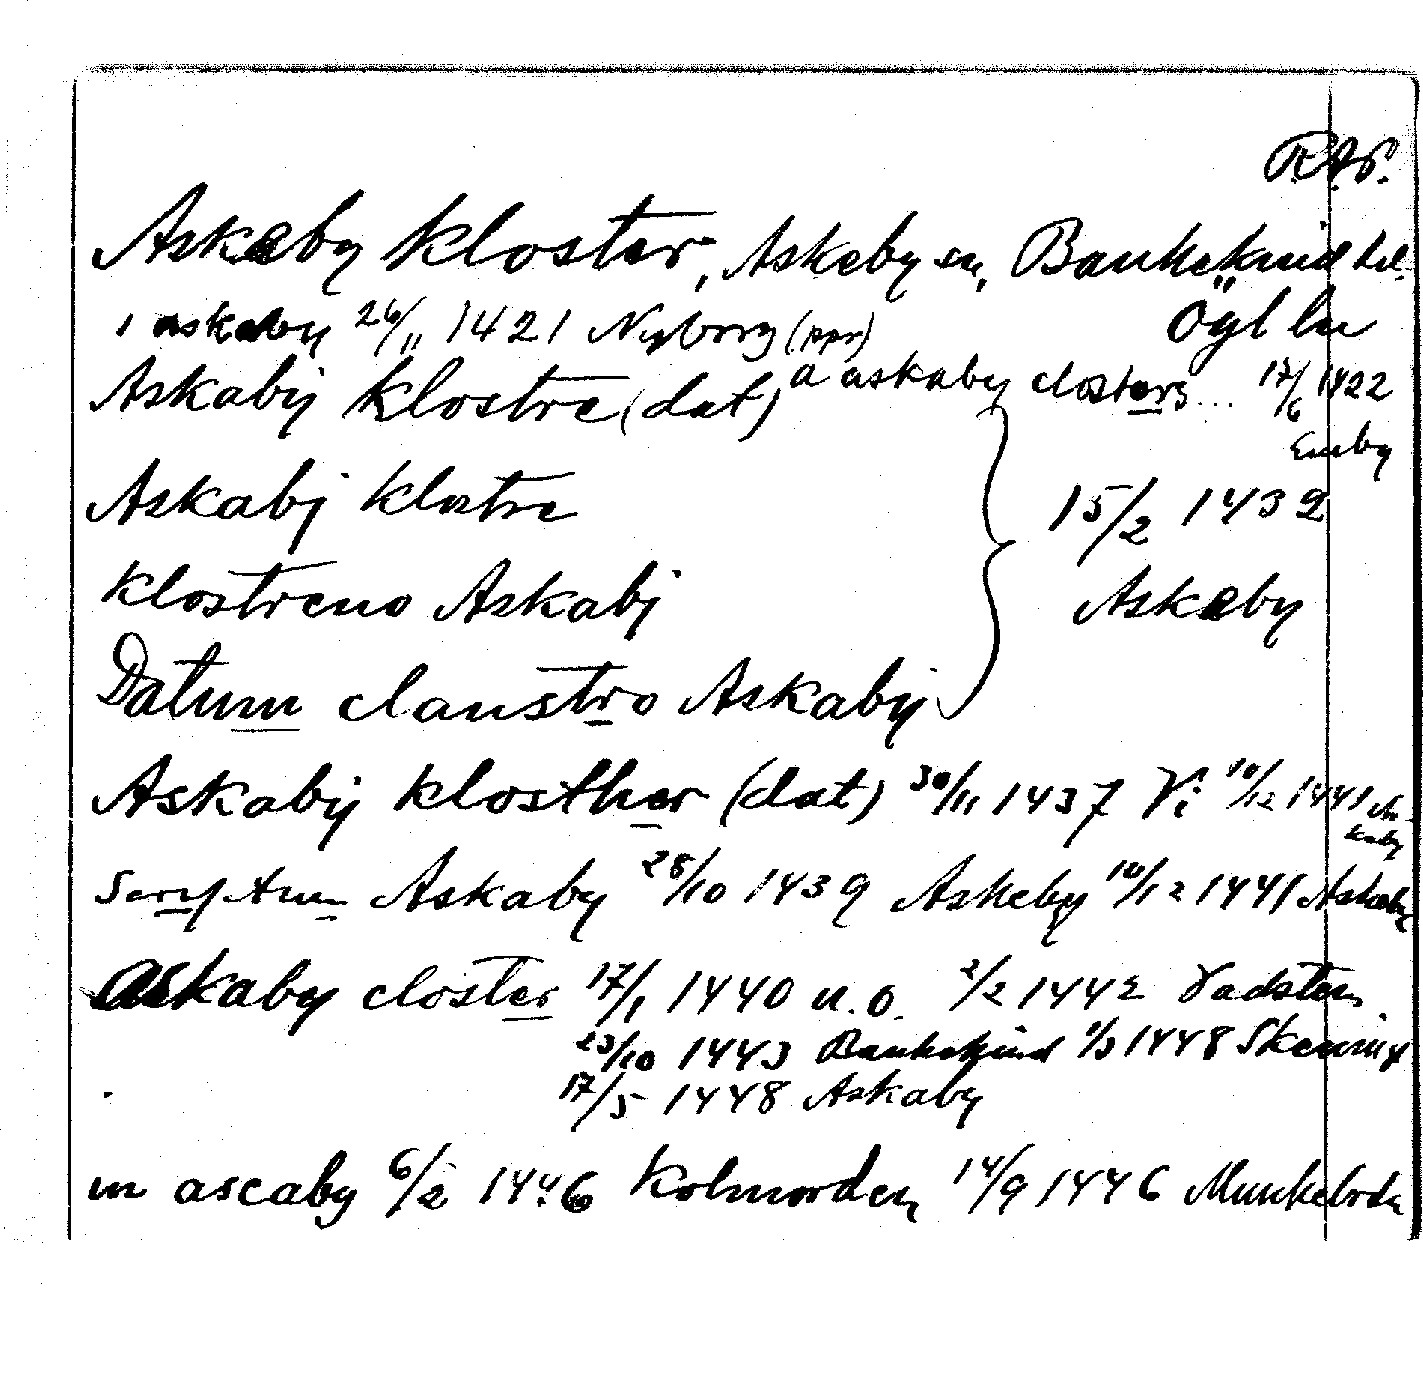 R.A.P.
Askeby kloster, Askeby sn, Bankekind hd
Ögl län
i askaby 26/11 1421 Nyborg (ppr)
Askabij klostre (dat) a askaby closters... 17/6 1422
Askabj klostre 15/2 1432
klostreno Askabj Askeby
Datum claustro Askabij
Askabij klosther (dat) 30/11 1437 Vi 10/12 1441 Askeby
Scriptum Askaby 28/10 1439 Askeby 10/12 1441 Askeby
askaby closter 17/1 1440 u.o. 2/2 1442 Vadsten
23/10 1443 Bankekind 1/3 1448 Skenninge
17/5 1448 Askaby
in ascaby 6/2 1446 Kolmorden 14/9 1446 Munkeboda